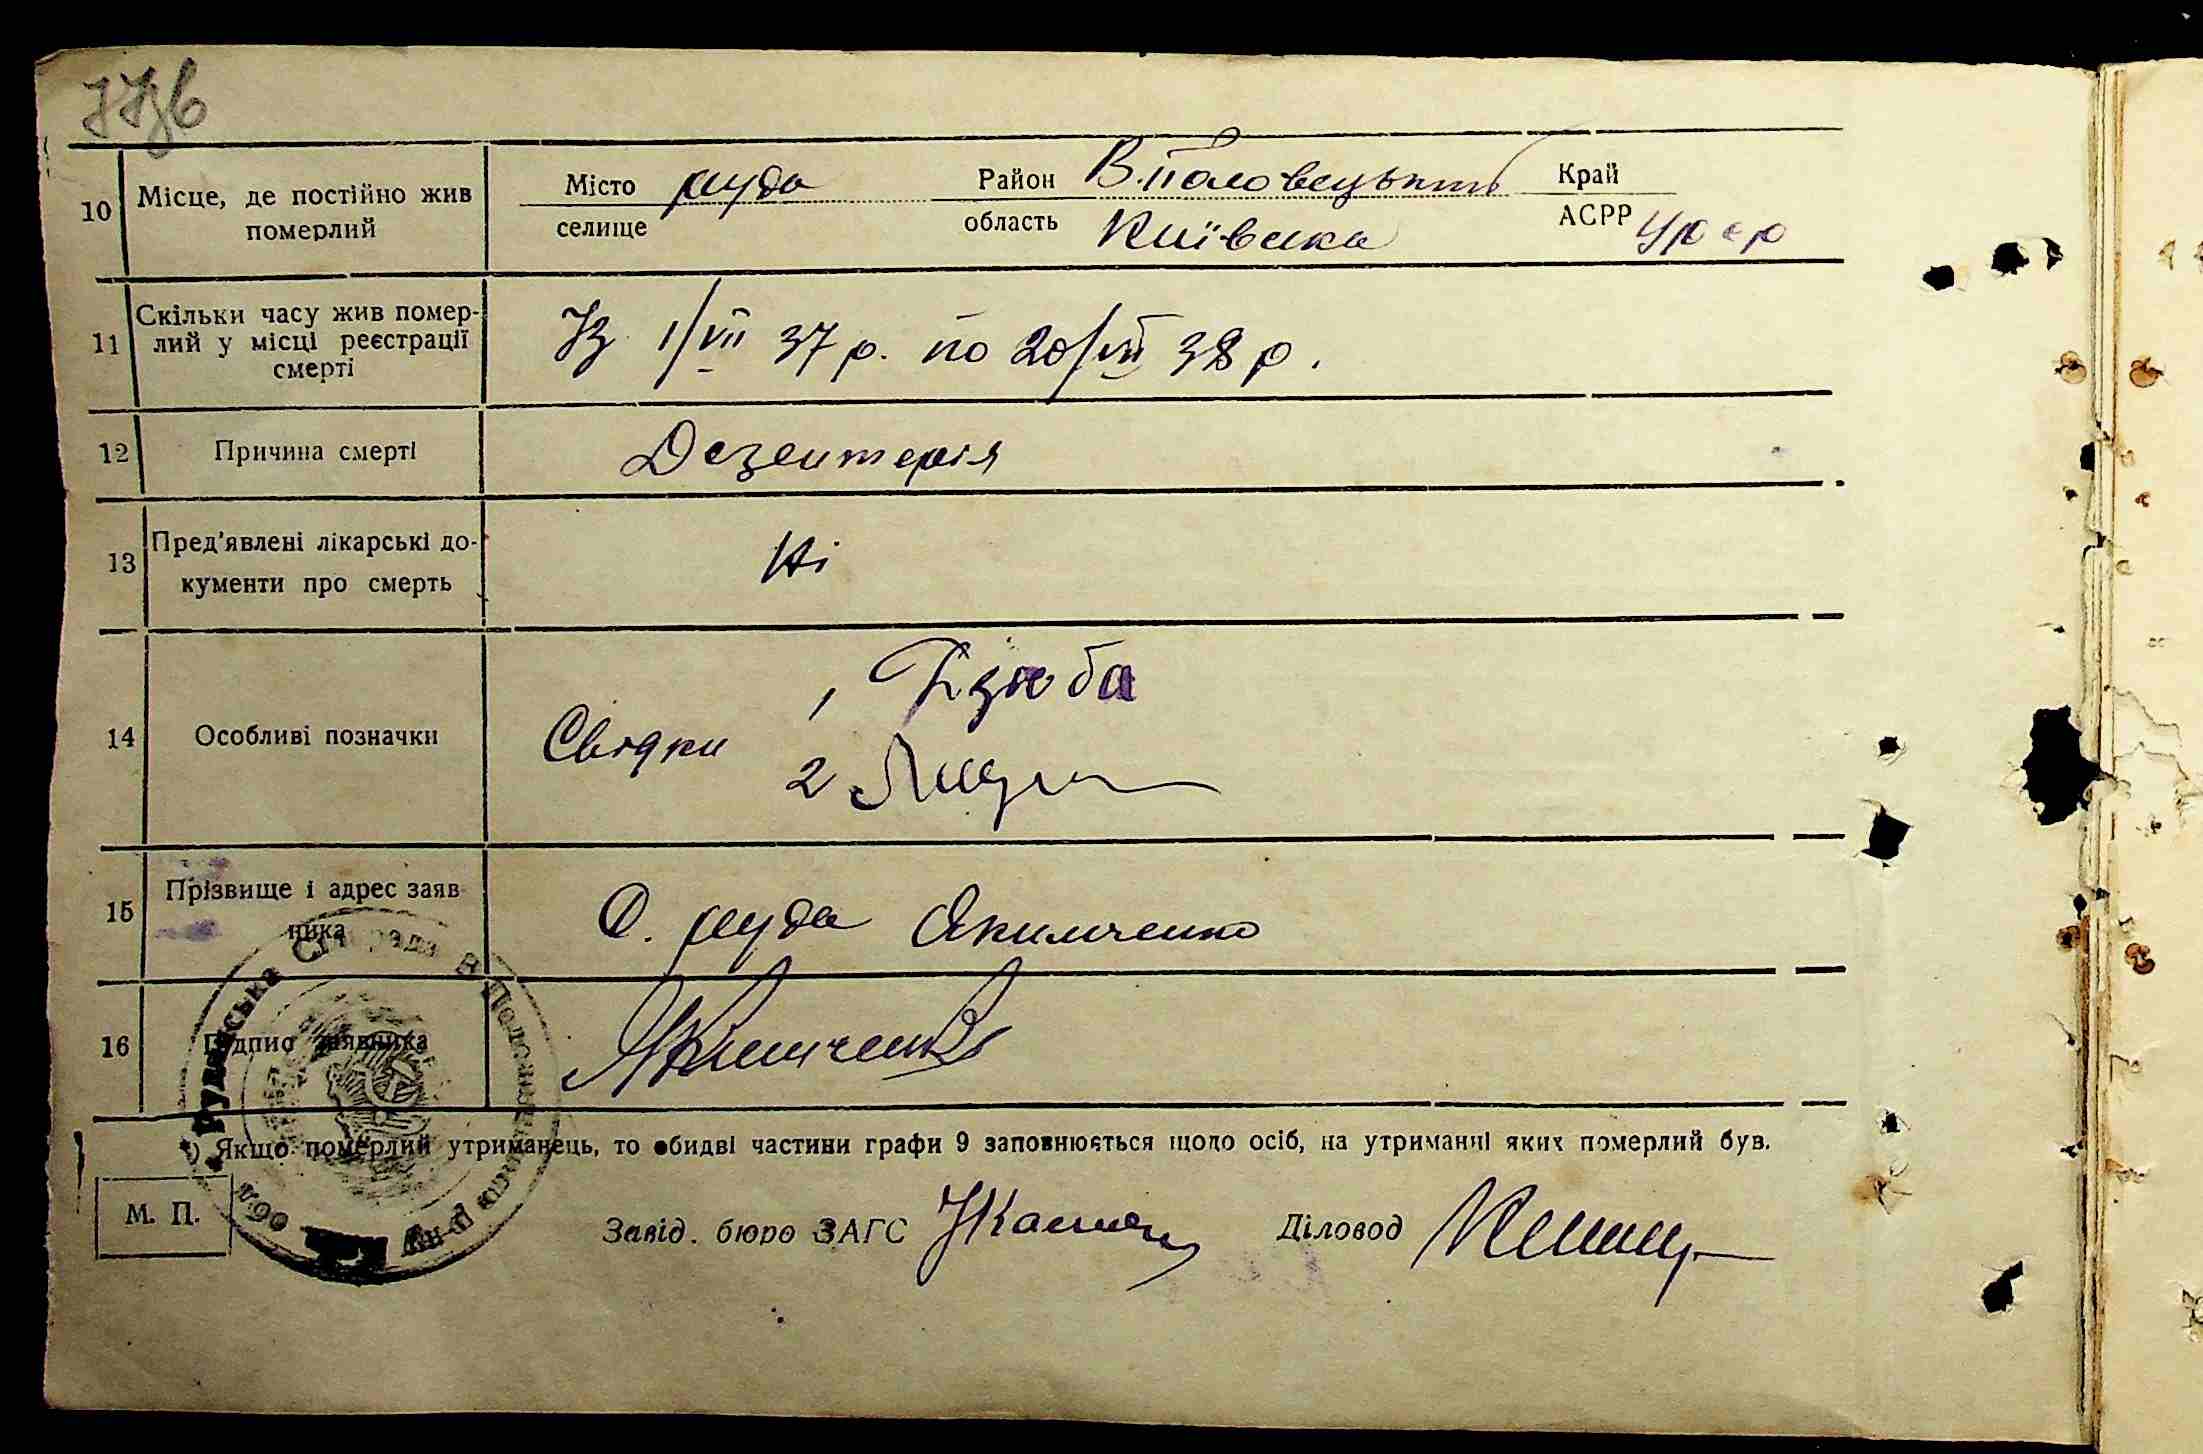 10 Місце, де постійно жив померлий
Місто руда Район В. Половецький Край
селище область Київська АСРР Урср
11 Скільки часу жив помер-
лий у місці реєстрації
смерті
Із 1/VII 37 р. по 20/VII 38 р.
12 Причина смерті Дезентерія
13 Пред'явлені лікарські до-
кументи про смерть
Ні
14 Особливі позначки
Свідки
1, Дзюба
2
15 Прізвище і адрес заяв
ника
С. руда Якимченко
16 Підпис заявника Якимченко
*) Якщо померлий утриманець, то обидві частини графи 9 заповнюється щодо осіб, на утриманні яких померлий був.
М. П.
Завід. бюро ЗАГС
Діловод
Рудянська Сільрада В Половецького р-ну обл